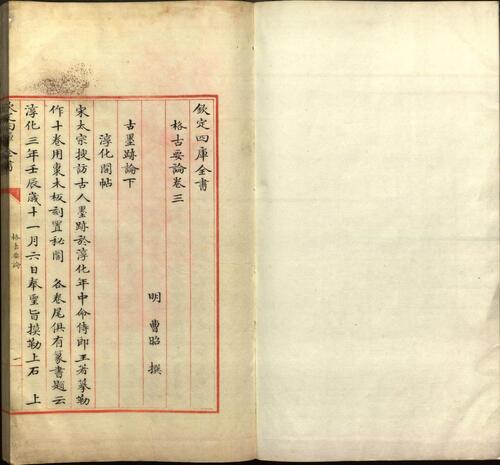 欽定四庫全書
格古要論卷三
明 曹昭 撰
古墨跡論下
淳化閣帖
宋太宗搜訪古人墨跡於淳化年中命侍郎王著摹勒
作十卷用棗木板刻置秘閣 各卷尾俱有篆書題云
淳化三年壬辰歳十一月六日奉聖旨摸勒上石 上
欽定四庫全書
格古要論
一